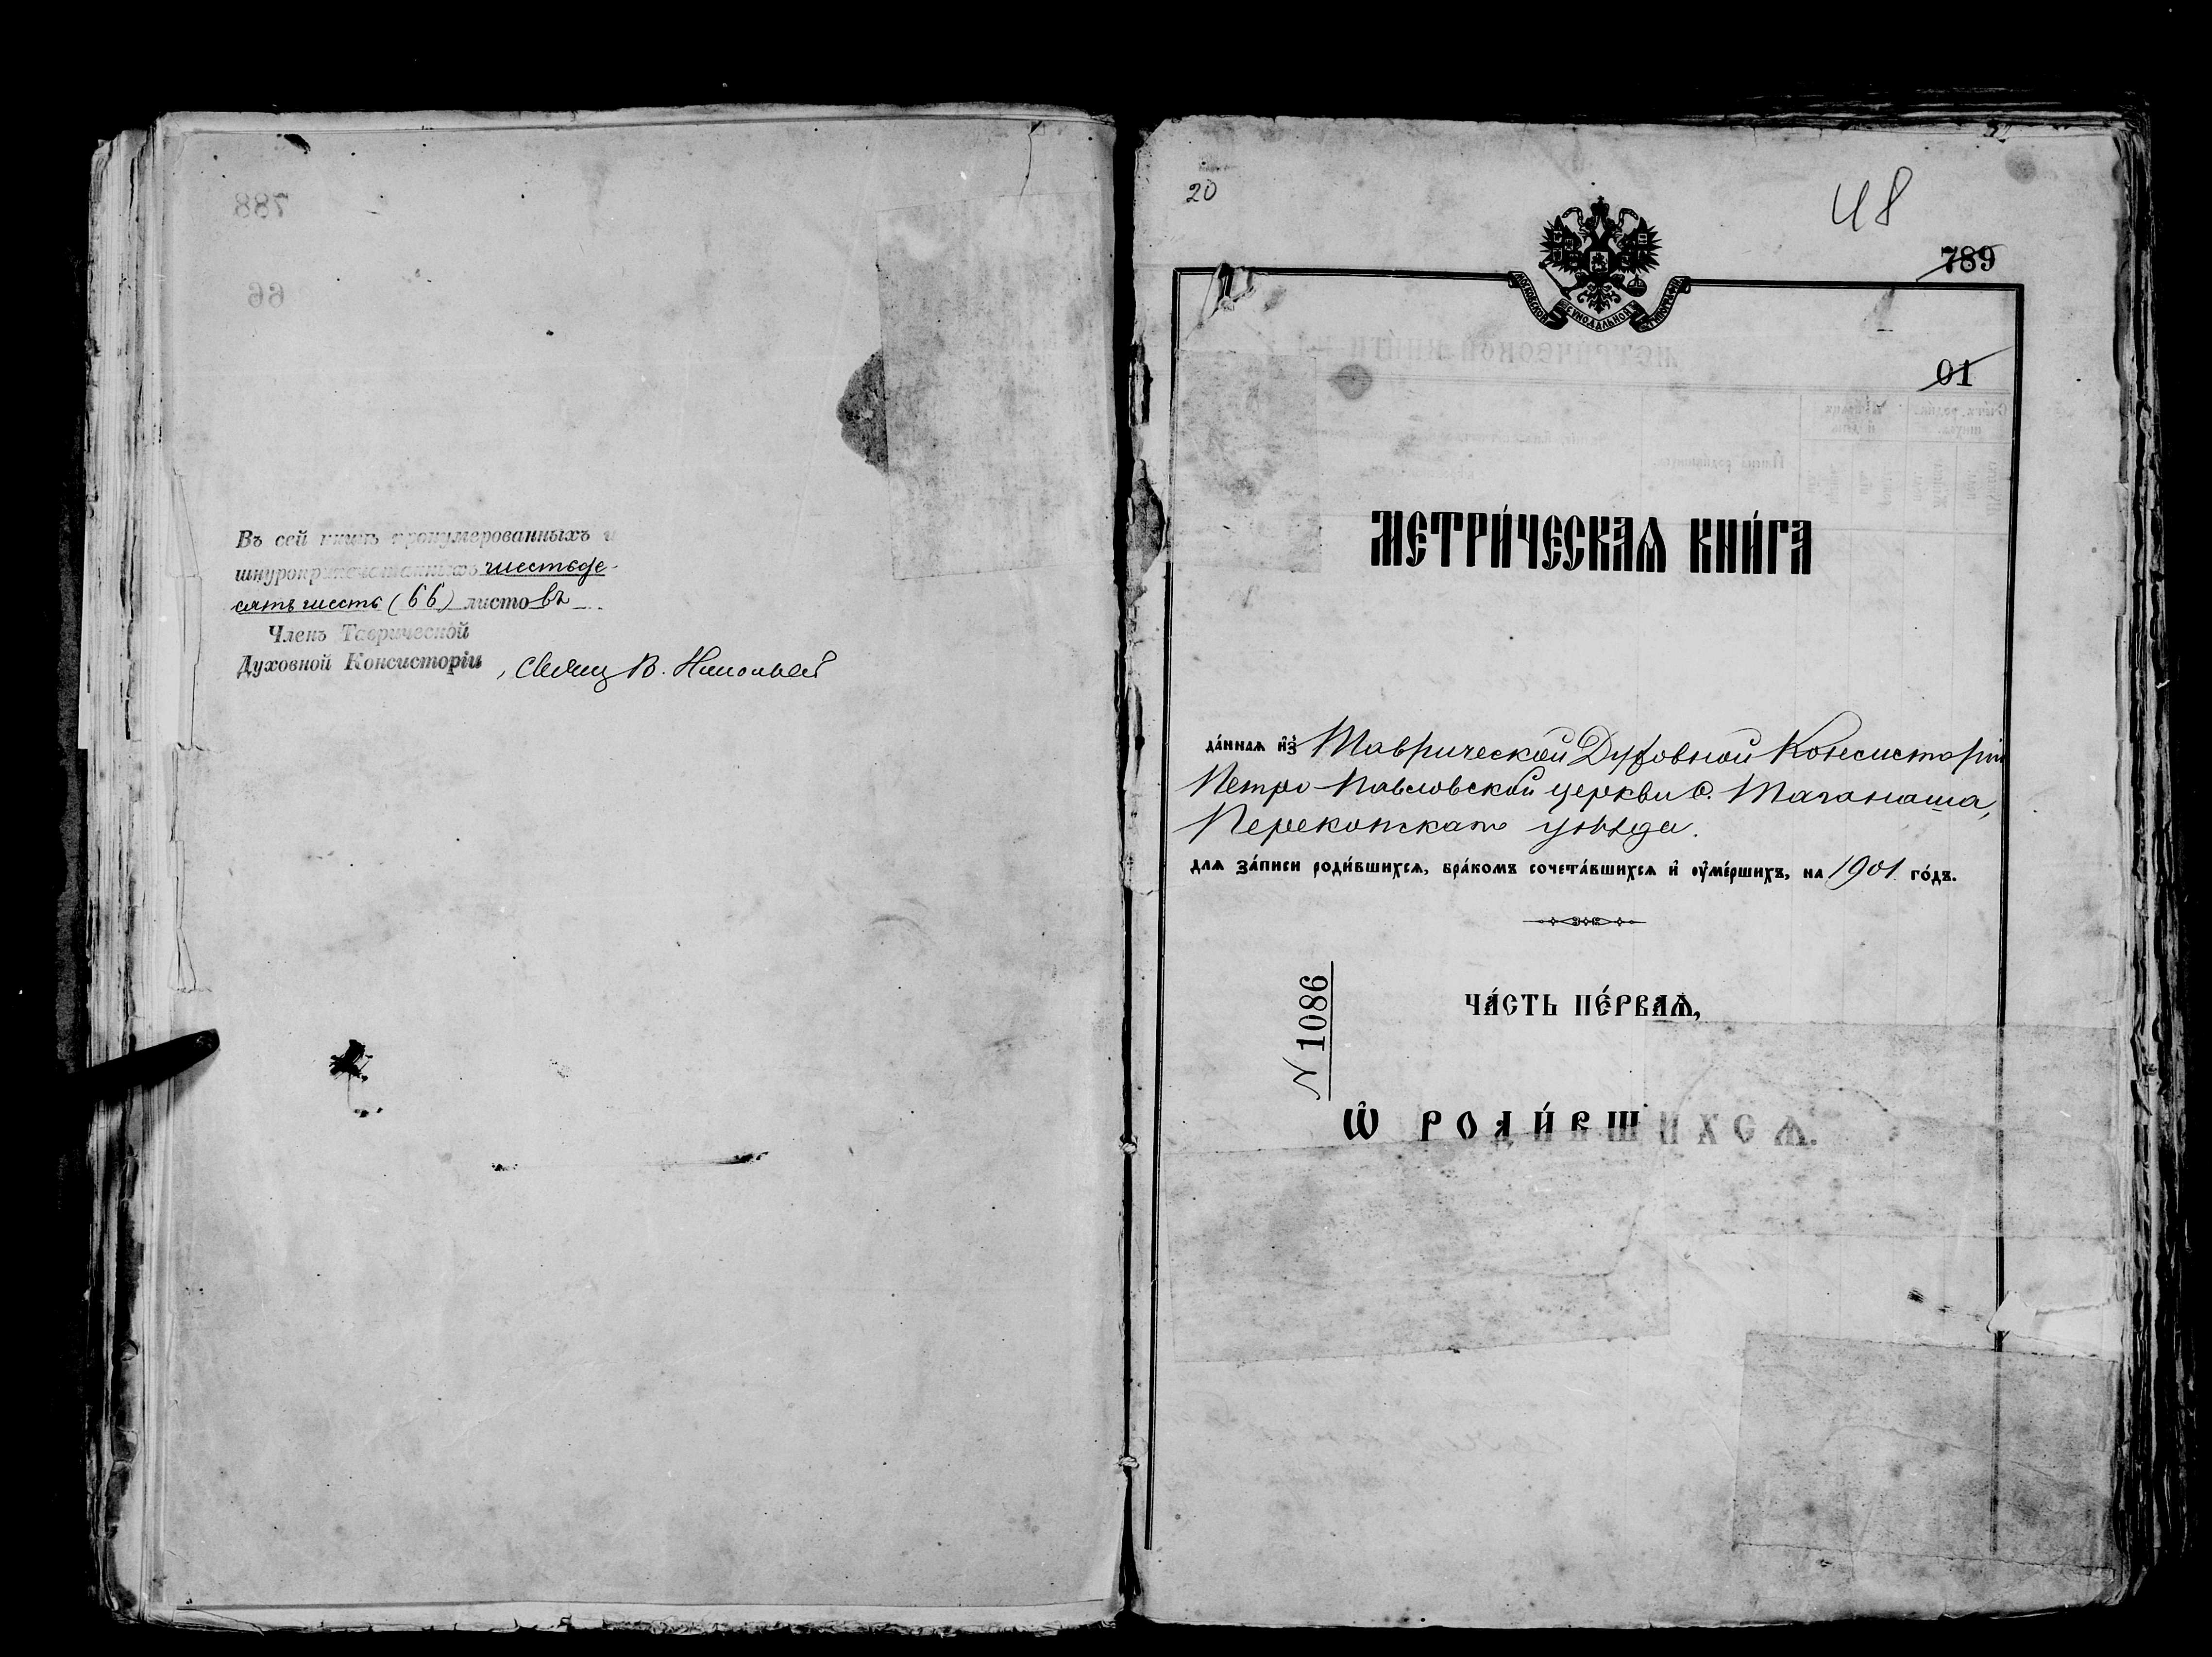 788
66
Въ сей книгѣ пронумерованныхъ и
шнуроприпечатанныхъ шестьде-
сять шесть (66) листовъ
Членъ Таврической
Духовной Консисторіи, свящ В.
20
48
789
МОСКОВСКОЙ СѴНОДАЛЬНОЙ ТИПОГРАФІИ
01
МЕТРИ́ЧЕСКАѦ КНИ́ГА
да́ннаѧ и҆зъ Таврической Духовной Консисторіи
Петро-Павловской церкви с. Таганаша,
Перекопскаго уѣзда.
длѧ за́писи роди́вшихсѧ, бра́комъ сочета́вшихсѧ и҆ ѹ҆ме́ршихъ, на 1901 го́дъ.
N 1086
ЧА́СТЬ ПЕ́РВАѦ,
Ѽ РОДИ́ВШИХСѦ.